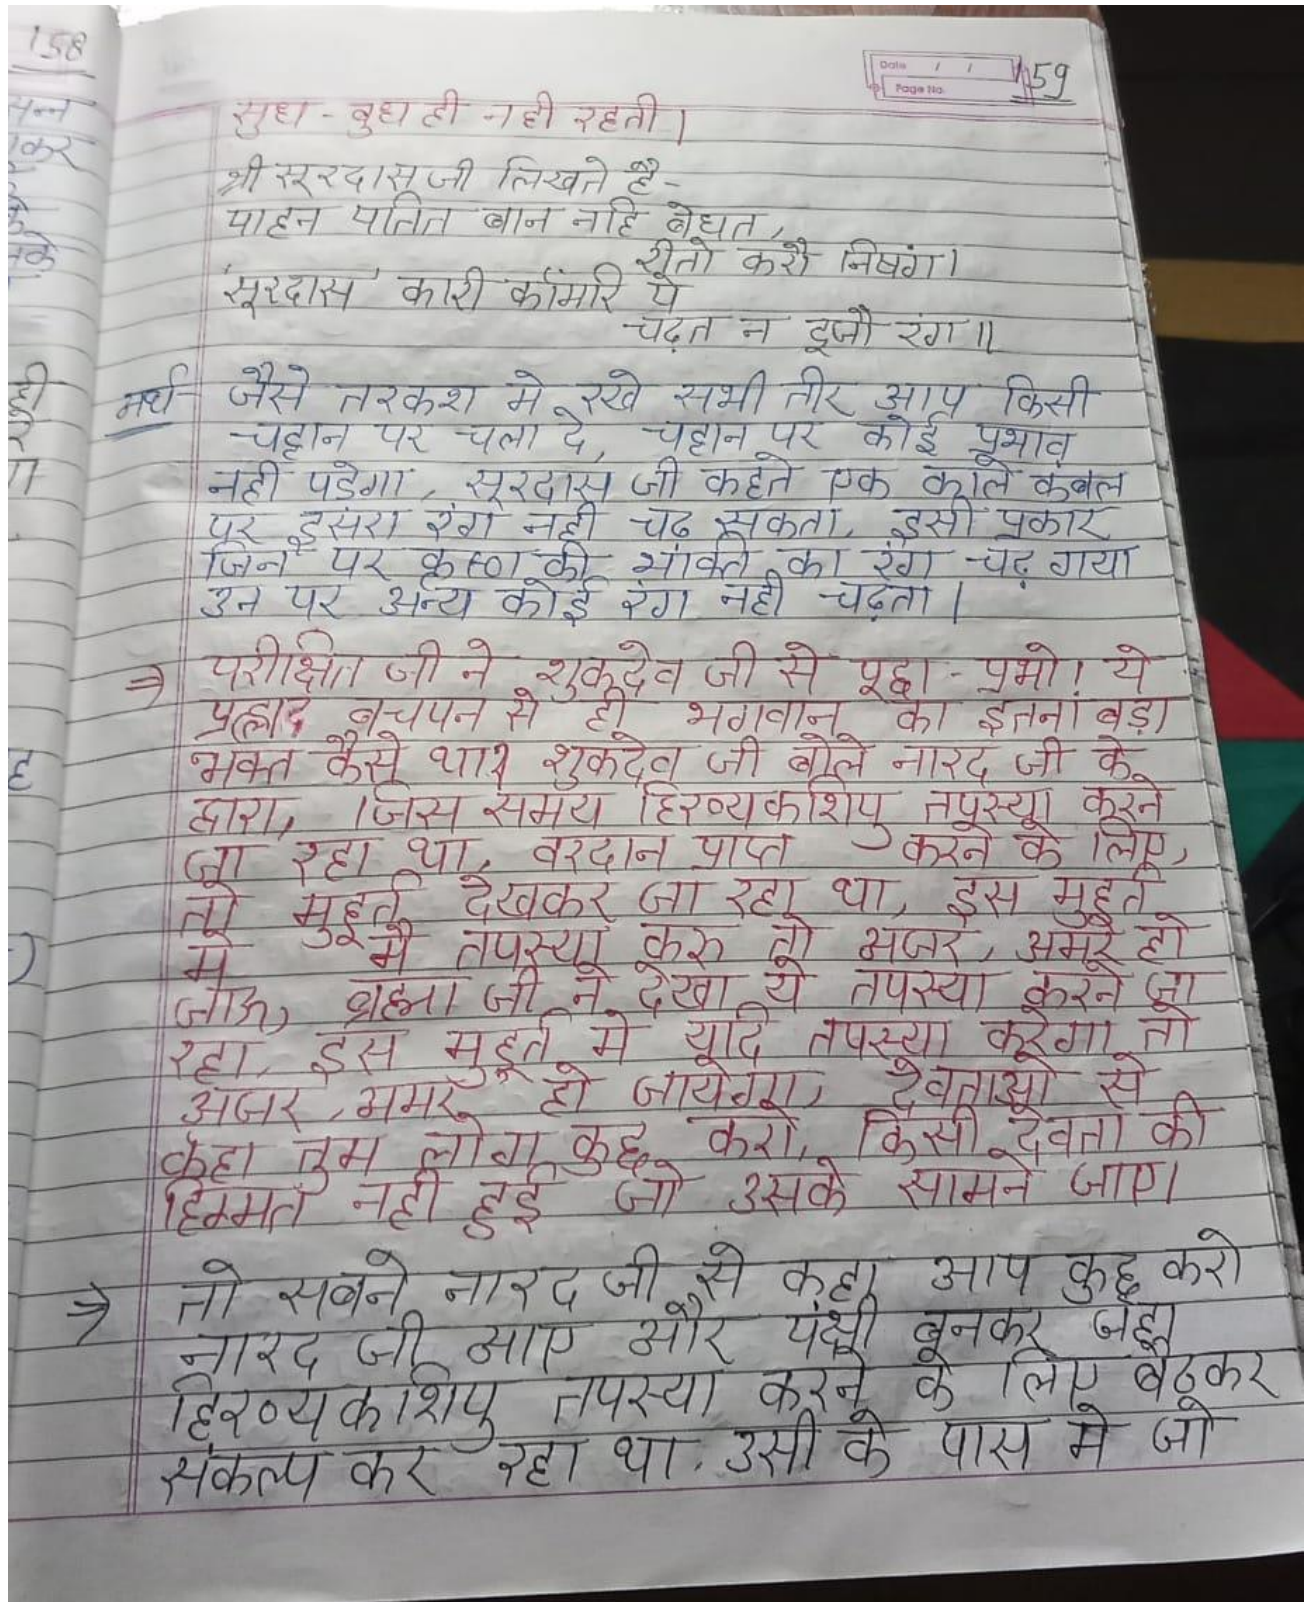 158
Date / /
Page No.
159
सुध - बुध ही नही रहती।
श्री सूरदास जी लिखते है-
पाहन पतित बान नहि बेधत,
रीतो करौ निषंग।
'सूरदास' कारी कॉमरि पे
चढ़त न दूजौ रंग॥
अर्थ- जैसे तरकश मे रखे सभी तीर आप किसी
चट्टान पर चला दे, चट्टान पर कोई प्रभाव
नही पडेगा, सूरदास जी कहते एक काले कंबल
पर दूसरा रंग नही चढ सकता, इसी प्रकार
जिन पर कृष्ण की भक्ति का रंग चढ़ गया
उन पर अन्य कोई रंग नही चढ़ता।
⇒ परीक्षित जी ने शुकदेव जी से पूछा - प्रभो! ये
प्रह्लाद बचपन से ही भगवान का इतना बड़ा
भक्त कैसे था? शुकदेव जी बोले नारद जी के
द्वारा, जिस समय हिरण्यकशिपु तपस्या करने
जा रहा था, वरदान प्राप्त करने के लिए,
तो मुहूर्त देखकर जा रहा था, इस मुहूर्त
मे मै तपस्या करु तो अजर, अमर हो
जाऊ, ब्रह्मा जी ने देखा ये तपस्या करने जा
रहा, इस मुहूर्त मे यदि तपस्या करेगा तो
अजर, अमर हो जायेगा, देवताओ से
कहा तुम लोग कुछ करो, किसी देवता की
हिम्मत नही हुई जो उसके सामने जाए।
⇒ तो सबने नारद जी से कहा आप कुछ करो
नारद जी आए और पंक्षी बनकर जहा
हिरण्यकशिपु तपस्या करने के लिए बैठकर
संकल्प कर रहा था, उसी के पास मे जो